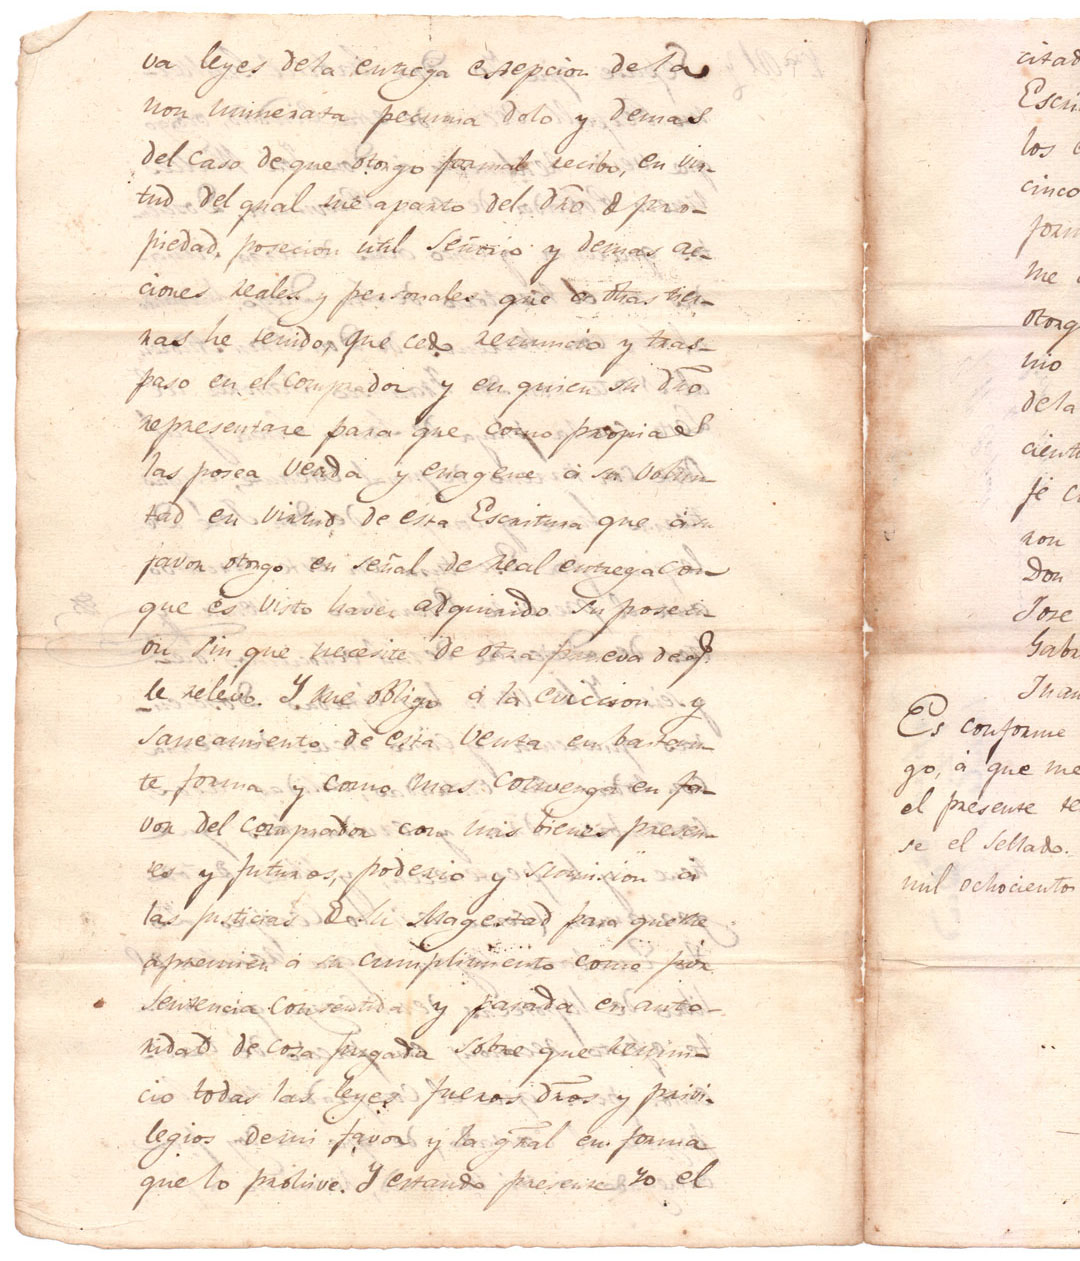 va leyes dela entrega esepcion dela
non numerata pecunia dolo y demas
del caso de que otorgo formal recibo, en vir-
tud del qual me aparto del dro. d pro-
piedad, posecion util Señorio y demas ac-
ciones reales y personales que a otras tier-
ras he tenido, que cedo renuncio y tras-
paso en el comprador y en quien su dro
representare para que como propia el
las posea venda y enagene á su volun-
tad en virtud de esta Escritura que á su
favor otorgo en señal de real entrega con
que es visto haver adquirido su posesi-
on sin que necesite de otra prueva de q
le relevo. Y me obligo á la eviccion y
saneamiento de esta Venta en bastan-
te, forma y como mas convenga en fa-
vor del comprador con mis bienes presen-
tes y futuros, poderio y sumision á
las justicias de su Magestad para que me
apremien á su cumplimiento como por
sentencia consentida y pasada en auto-
ridad de cosa juzgada sobre que renun-
cio todas las leyes fueros dros y privi-
legios demi favor y la gral en forma
que lo prohive. Y estando presente yo el
citad
Escri
los
cinco
form
me
otorg
mo
dela
cient
fé c
ron
Don
Jose
Gabr
Juan
Es conforme
go, á que me
el presente te
se el Sellado.
mil ochociento